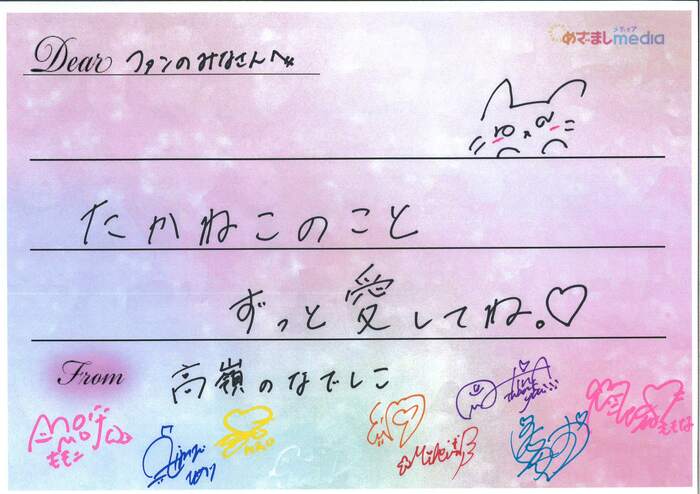 めざましmedia
メディア
Dear ファンのみなさんへ
たかねこのこと
ずっと愛してね。♡
From 高嶺のなでしこ
ももこ
えもな